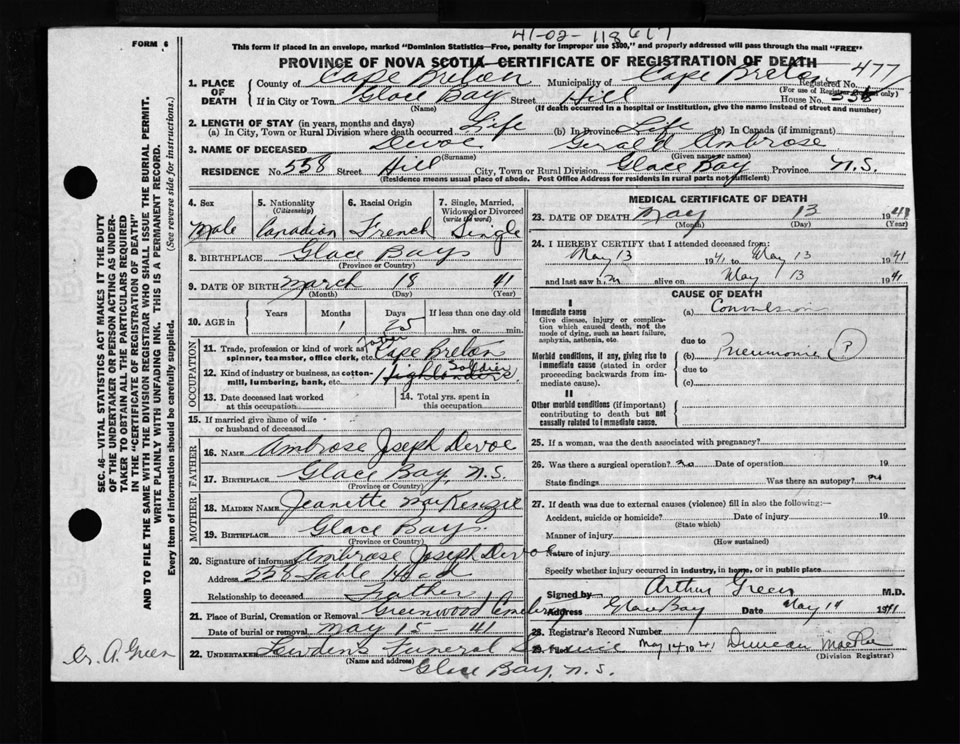 41-02-118617
FORM 6
This form if placed in an envelope, marked "Dominion Statistics—Free, penalty for improper use $300," and properly addressed will pass through the mail "FREE"
PROVINCE OF NOVA SCOTIA—CERTIFICATE OF REGISTRATION OF DEATH
477
1. PLACE OF DEATH
County of Cape Breton Municipality of Cape Breton Registered No.
(For use of Registrar only)
If in City or Town Glace Bay Street Hill House No. 558
(Name) (If death occurred in a hospital or institution, give the name instead of street and number)
2. LENGTH OF STAY (in years, months and days)
(a) In City, Town or Rural Division where death occurred Life (b) In Province Life (c) In Canada (if immigrant)
3. NAME OF DECEASED Devoe Gerald Ambrose
(Surname) (Given name or names)
RESIDENCE No. 558 Street Hill City, Town or Rural Division Glace Bay Province N.S.
(Residence means usual place of abode. Post Office Address for residents in rural parts not sufficient)
SEC. 46—VITAL STATISTICS ACT MAKES IT THE DUTY
OF THE UNDERTAKER OR PERSON ACTING AS UNDERTAKER
TO OBTAIN ALL THE PARTICULARS REQUIRED
IN THE "CERTIFICATE OF REGISTRATION OF DEATH"
AND TO FILE THE SAME WITH THE DIVISION REGISTRAR WHO SHALL ISSUE THE BURIAL PERMIT.
WRITE PLAINLY WITH UNFADING INK. THIS IS A PERMANENT RECORD.
Every item of information should be carefully supplied. (See reverse side for instructions.)
4. Sex Male
5. Nationality (Citizenship) Canadian
6. Racial Origin French
7. Single, Married, Widowed or Divorced (write the word) Single
8. BIRTHPLACE Glace Bay
(Province or Country)
9. DATE OF BIRTH March 18 41
(Month) (Day) (Year)
10. AGE in Years Months 1 Days 25 If less than one day old
hrs. or min.
OCCUPATION
11. Trade, profession or kind of work as spinner, teamster, office clerk, etc. Cape Breton
12. Kind of industry or business, as cotton-mill, lumbering, bank, etc. Highlanders Soldier
13. Date deceased last worked at this occupation
14. Total yrs. spent in this occupation
15. If married give name of wife or husband of deceased
FATHER
16. NAME Ambrose Joseph Devoe
17. BIRTHPLACE Glace Bay, N.S.
(Province or Country)
MOTHER
18. MAIDEN NAME Jeanette MacKenzie
19. BIRTHPLACE Glace Bay
(Province or Country)
20. Signature of informant Ambrose Joseph Devoe
Address 558 Table Head
Relationship to deceased Father
21. Place of Burial, Cremation or Removal Greenwood Cemetery
Date of burial or removal May 15-41
22. UNDERTAKER Funeral Service
(Name and address)
Glace Bay, N.S.
Dr. A. Green
MEDICAL CERTIFICATE OF DEATH
23. DATE OF DEATH May 13 1941
(Month) (Day) (Year)
24. I HEREBY CERTIFY that I attended deceased from:
May 13 1941 to May 13 1941
and last saw h im alive on May 13 1941
CAUSE OF DEATH
I
Immediate cause
Give disease, injury or complication which caused death, not the mode of dying, such as heart failure, asphyxia, asthenia, etc.
(a) Convulsion
due to
Morbid conditions, if any, giving rise to immediate cause (stated in order proceeding backwards from immediate cause).
(b) Pneumonia (P)
due to
(c)
II
Other morbid conditions (if important) contributing to death but not causally related to immediate cause.
25. If a woman, was the death associated with pregnancy?
26. Was there a surgical operation? no Date of operation 19
State findings Was there an autopsy? no
27. If death was due to external causes (violence) fill in also the following:—
Accident, suicide or homicide? Date of injury 19
(State which)
Manner of injury
(How sustained)
Nature of injury
Specify whether injury occurred in industry, in home, or in public place
Signed by Arthur Green M.D.
Address Glace Bay Date May 14 1941
28. Registrar's Record Number
29. Filed May 14 1941 Duncan
(Division Registrar)